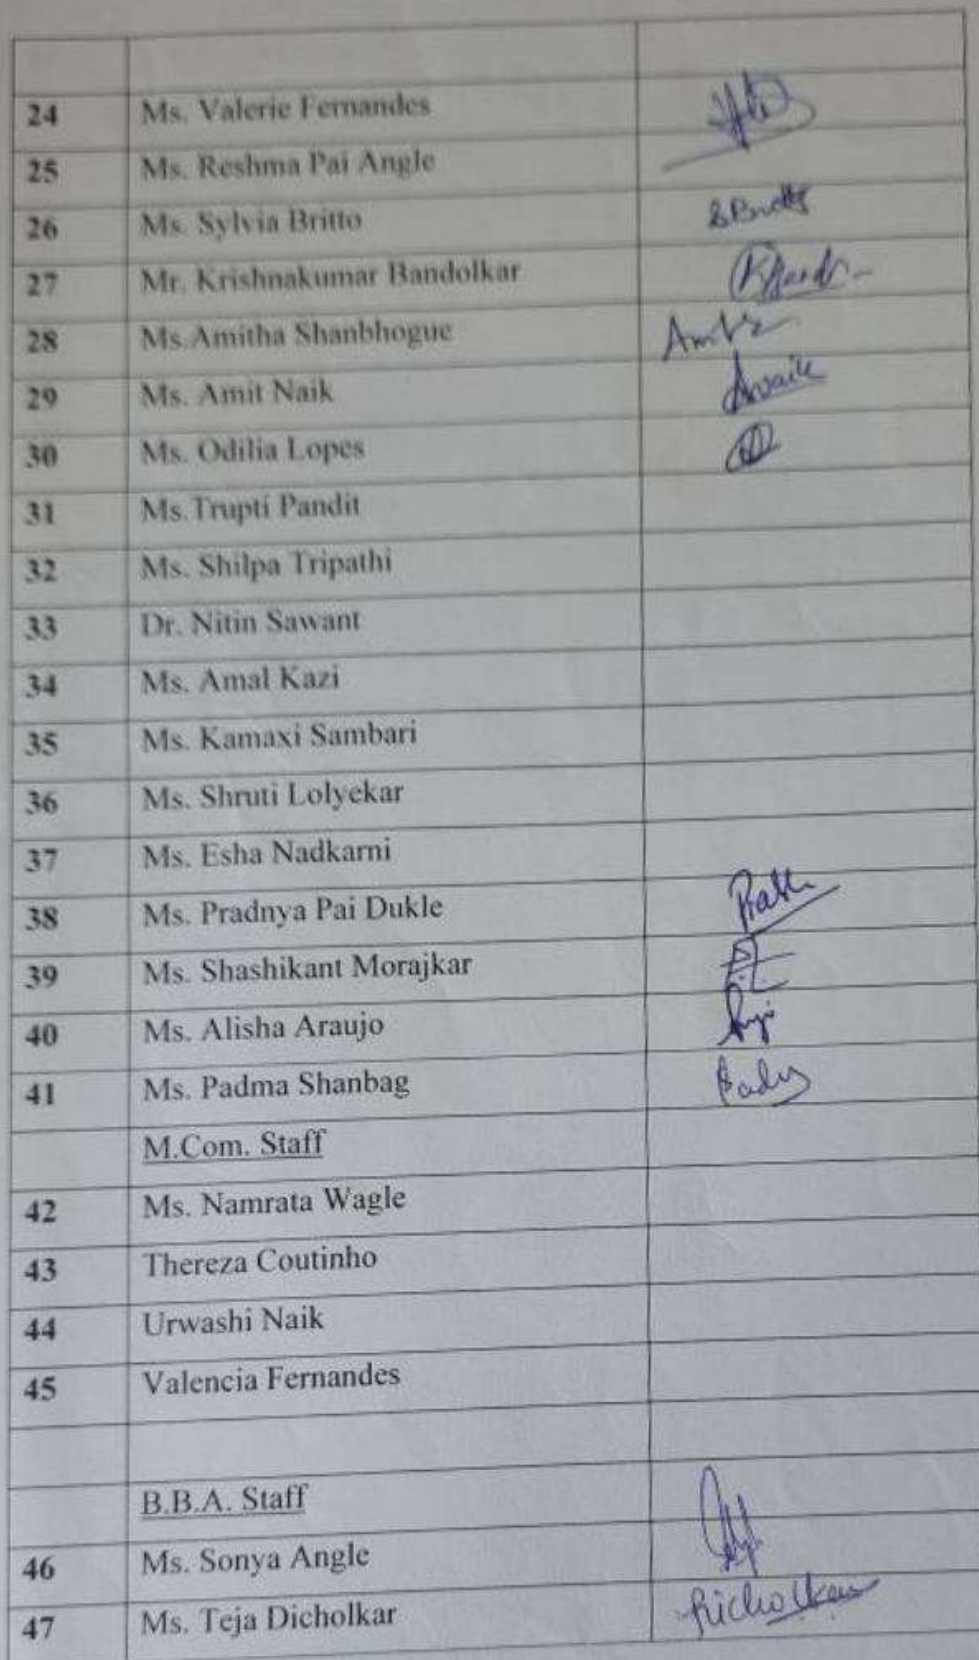 24 Ms. Valerie Fernandes
25 Ms. Reshma Pai Angle
26 Ms. Sylvia Britto SBritto
27 Mr. Krishnakumar Bandolkar
28 Ms.Amitha Shanbhogue
29 Ms. Amit Naik ANaik
30 Ms. Odilia Lopes
31 Ms.Trupti Pandit
32 Ms. Shilpa Tripathi
33 Dr. Nitin Sawant
34 Ms. Amal Kazi
35 Ms. Kamaxi Sambari
36 Ms. Shruti Lolyekar
37 Ms. Esha Nadkarni
38 Ms. Pradnya Pai Dukle
39 Ms. Shashikant Morajkar
40 Ms. Alisha Araujo
41 Ms. Padma Shanbag
M.Com. Staff
42 Ms. Namrata Wagle
43 Thereza Coutinho
44 Urwashi Naik
45 Valencia Fernandes
B.B.A. Staff
46 Ms. Sonya Angle
47 Ms. Teja Dicholkar